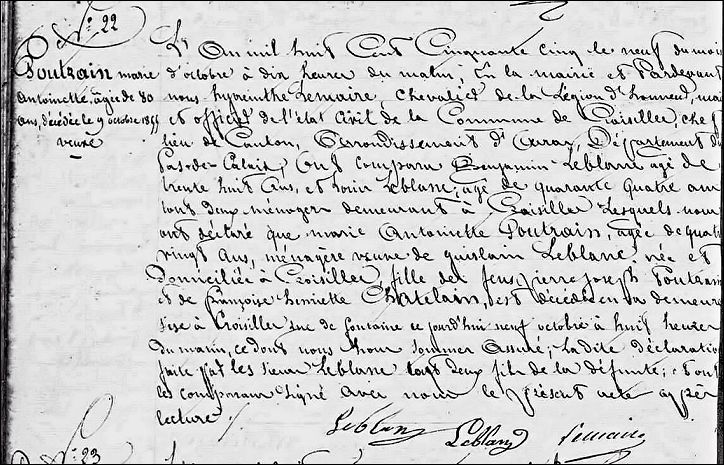 N° 22
Poutrain marie
Antoinette, agée de 80
ans, décédée le 9 octobre 1855
veuve
L'An mil huit Cent Cinquante cinq le neuf du mois
d'octobre à dix heures du matin; En la mairie et Pardevant
nous hyacinthe Lemaire, Chevalier de la Légion d'honneur, mai
et officier de l'état Civil de la Commune de Croisilles, chef
lieu de Canton, Arrondissement d'Arras, Département du
Pas-de-Calais, Ont comparu Benjamin Leblanc agé de
trente huit Ans, et Leblanc, agé de quarante quatre ans
tous deux ménagers demeurant à Croisilles Lesquels nous
ont déclaré que marie Antoinette Poutrain, agée de quatre
vingt Ans, ménagère veuve de guislain Leblanc née et
Domiciliée à Croisilles, fille des feus Pierre Joseph Poutrain
et de Françoise henriette Chatelain, est décédée en sa demeure
sise à Croisilles rue de fontaine ce jourd'hui neuf octobre à huit heures
du matin, ce dont nous nous sommes Assuré; La dite déclaration
faite par les sieurs Leblanc tous deux fils de la défunte; et ont
les comparans signé avec nous le présent acte après
lecture.
Leblanc Leblanc Lemaire
N° 23